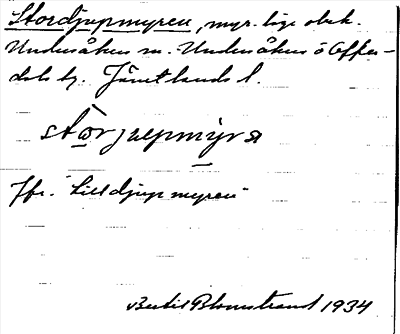 Stordjupmyren, myr. lige obek.
Undersåkers sn. Undersåkers o Offer-
dals tg. Jämtlands l.
stòrjuepmyra
Jfr. Lilldjupmyren
Bertil Blomstrand 1934